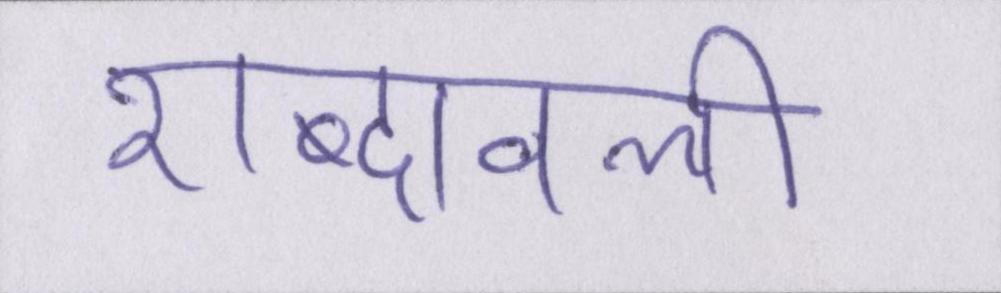 शब्दावली